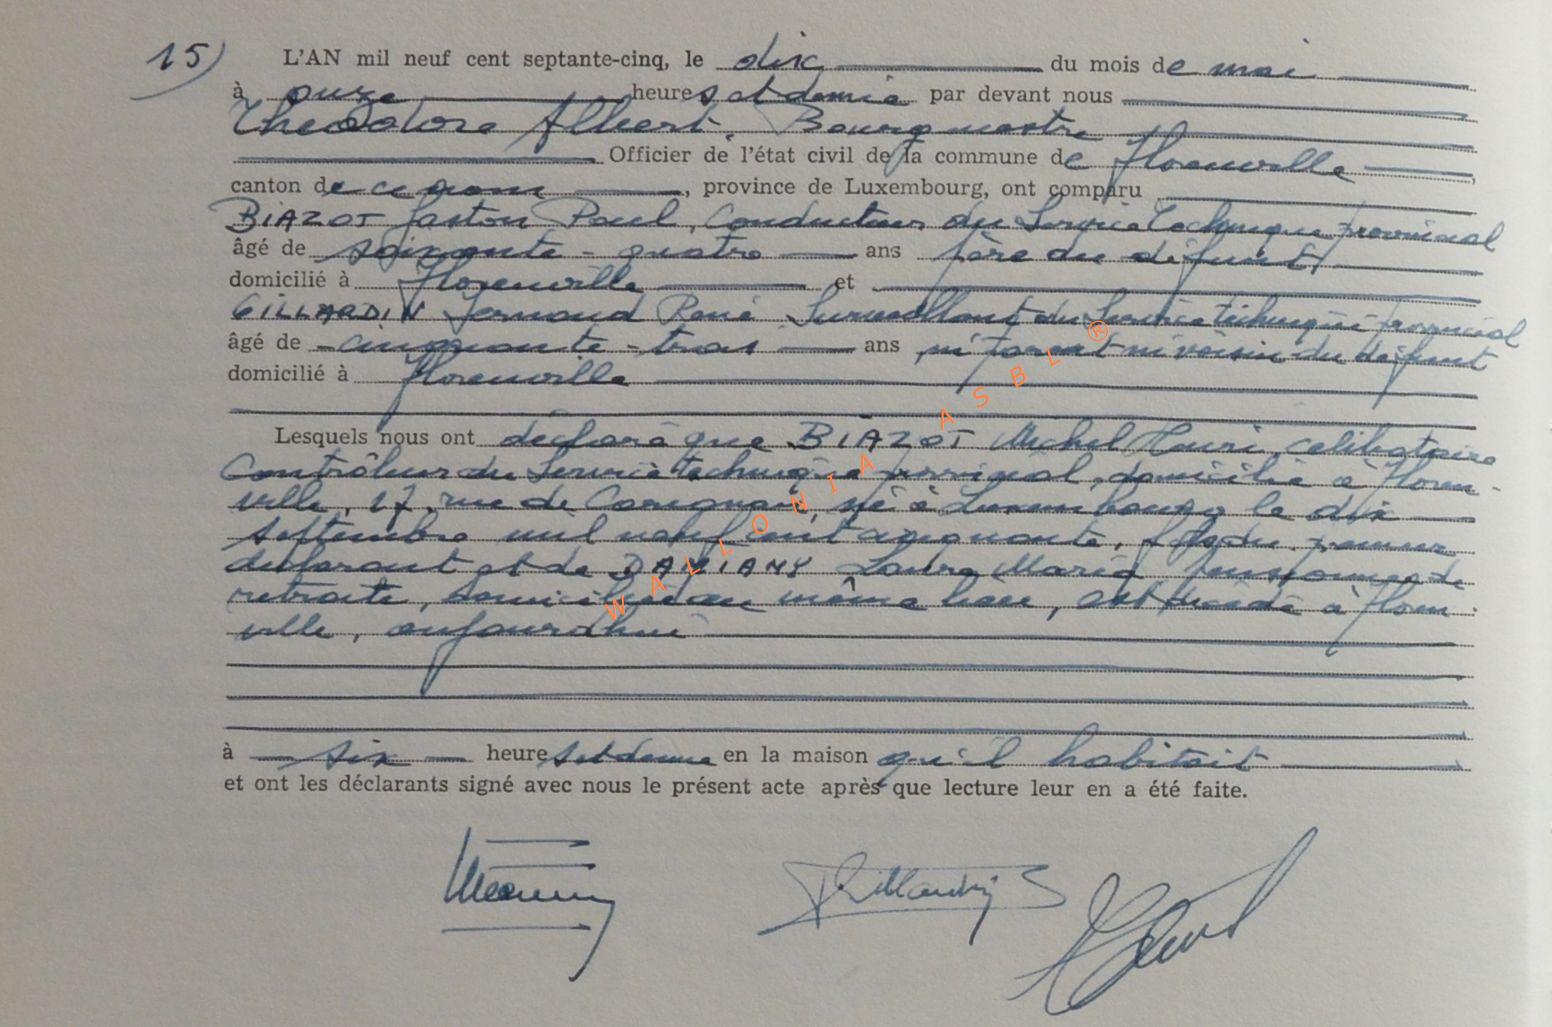 15) L'AN mil neuf cent septante-cinq, le dix du mois de mai
à onze heures et demie par devant nous
Théodore Albert, Bourgmestre
Officier de l'état civil de la commune de Florenville
canton de ce nom, province de Luxembourg, ont comparu
BIAZOT Gaston Paul, Conducteur du Service technique provincial
âgé de soixante-quatre ans père du défunt,
domicilié à Florenville et
GILLARDIN Fernand René Surveillant du Service technique provincial
âgé de cinquante-trois ans ni parent ni voisin du défunt
domicilié à Florenville
Lesquels nous ont déclaré que BIAZOT Michel Henri, célibataire
Contrôleur du Service technique provincial, domicilié à Floren-
ville, 17, rue de Carignan, né à Luxembourg le dix
septembre mil neuf cent cinquante, fils du premier
déclarant et de DAMIANY Laure Marie, pensionnée de
retraite, domiciliée au même lieu, est décédé à Floren-
ville, aujourd'hui
à six heures et demie en la maison qu'il habitait
et ont les déclarants signé avec nous le présent acte après que lecture leur en a été faite.
WALLONIA ASBL ®